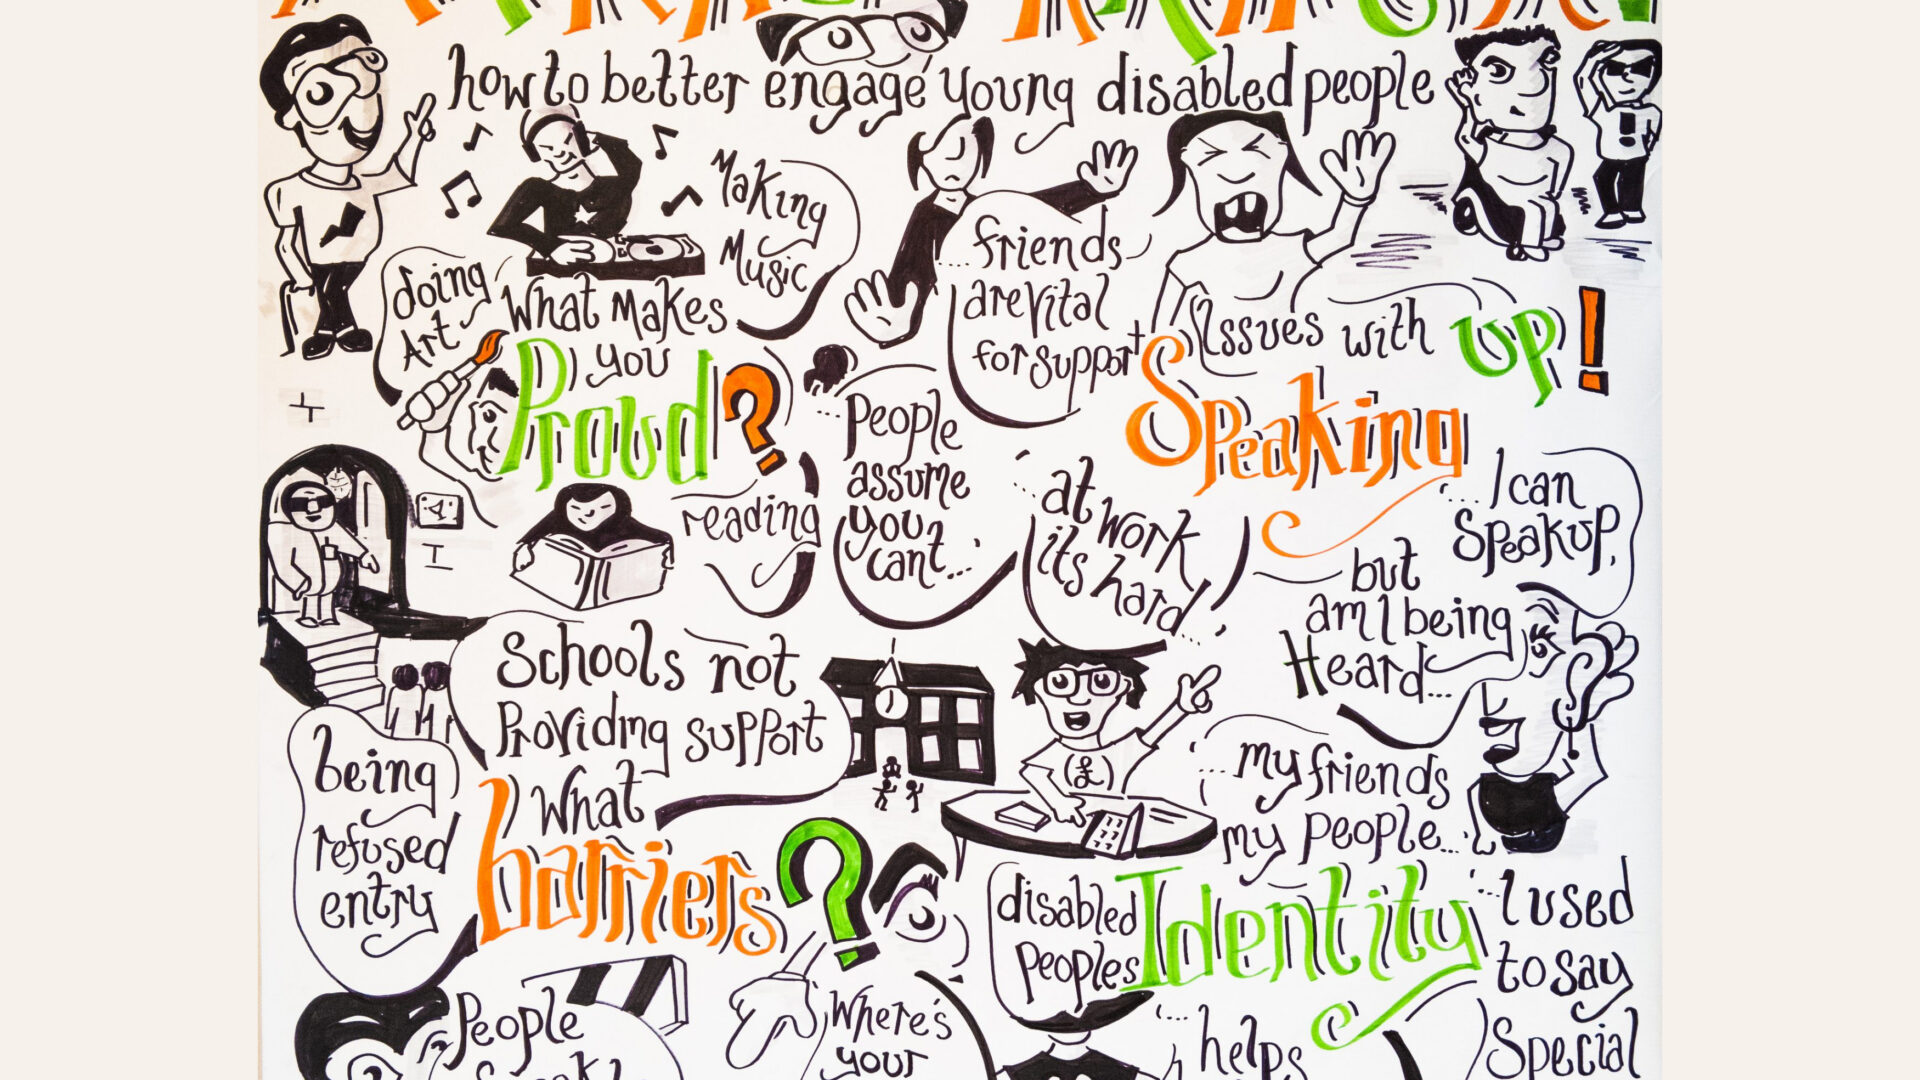 how to better engage young disabled people
Making
Music
doing
Art
What Makes
you
Proud?
reading
...friends
are vital
for support
Issues with
Speaking
UP!
...People
assume
you
cant...
...at work
its hard...
...I can
Speak up,
but
am I being
Heard...
Schools not
Providing support
being
refused
entry
What
barriers?
...my friends
my people...
disabled
peoples
Identity
...helps
...I used
to say
Special
People
Where's
your